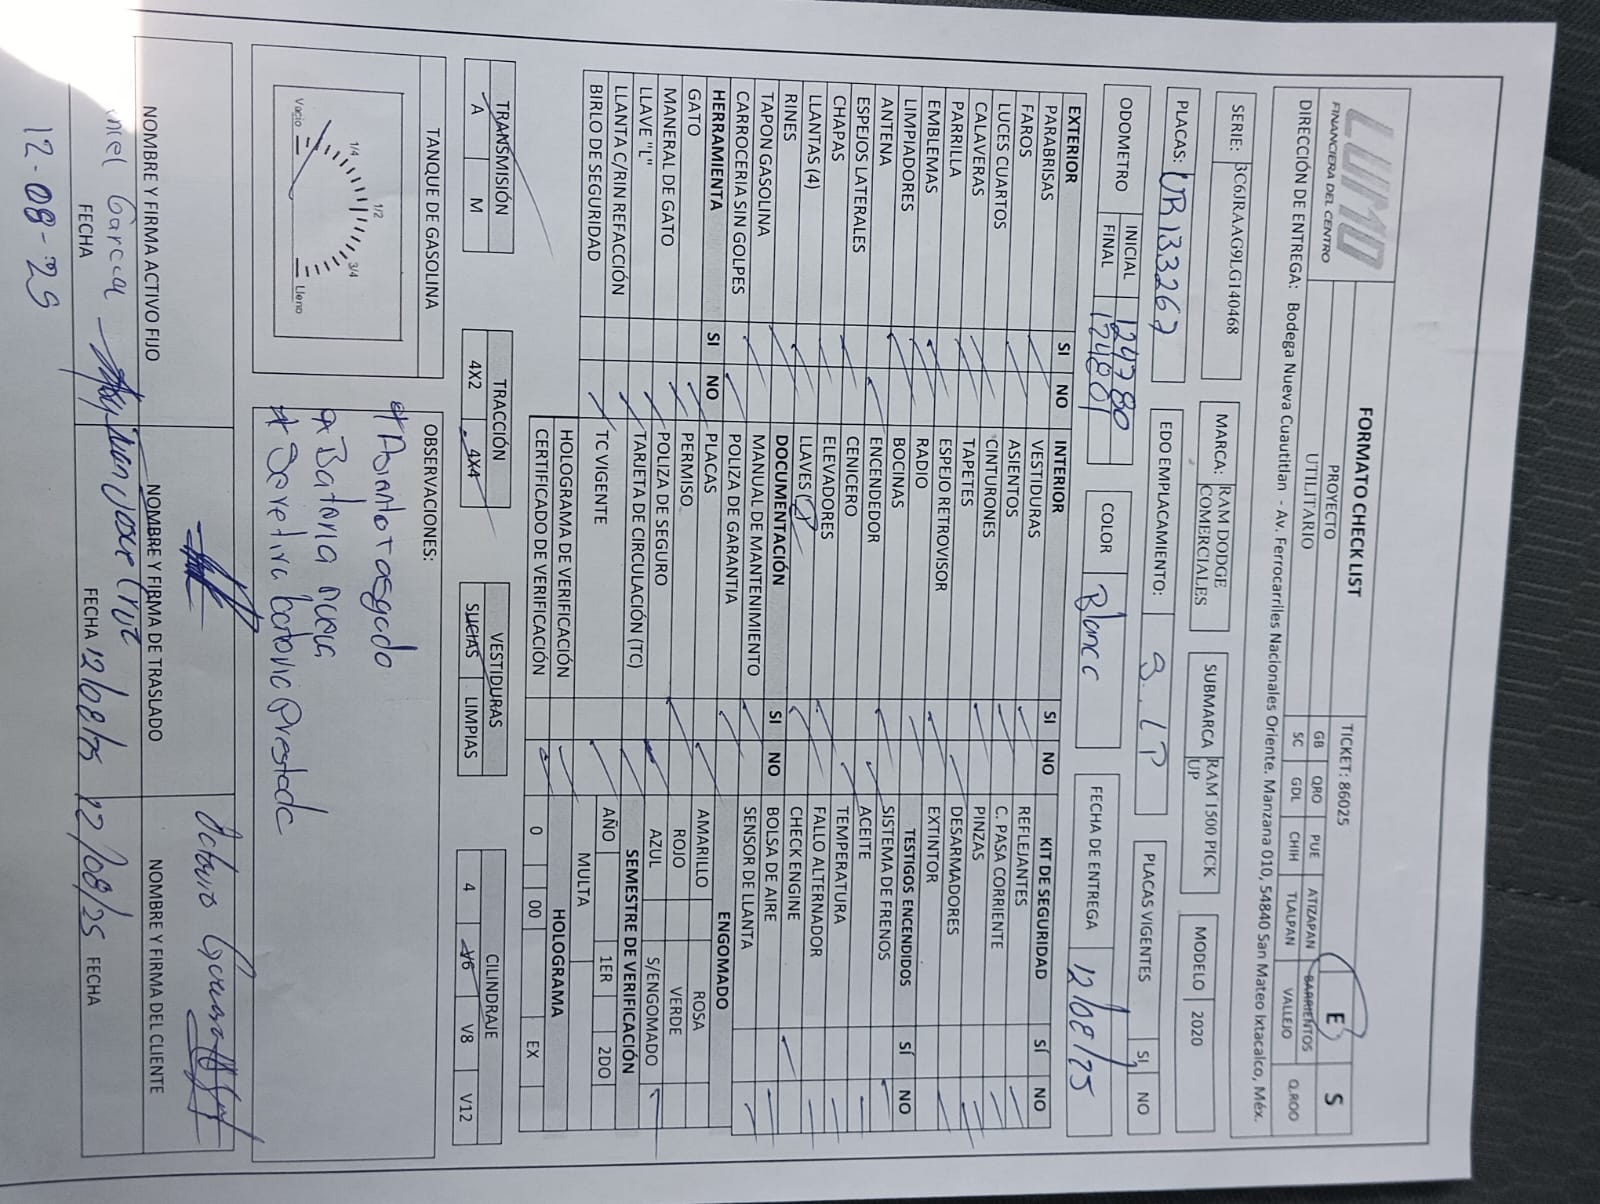 LUMO
FINANCIERA DEL CENTRO
FORMATO CHECK LIST
TICKET: 86025
E S
PROYECTO
UTILITARIO
GB QRO PUE ATIZAPAN BARRIENTOS
SC GDL CHIH TLALPAN VALLEJO Q.ROO
DIRECCIÓN DE ENTREGA: Bodega Nueva Cuautitlán - Av. Ferrocarriles Nacionales Oriente. Manzana 010, 54840 San Mateo Ixtacalco, Méx.
SERIE: 3C6JRAAG9LG140468
MARCA: RAM DODGE COMERCIALES
SUBMARCA RAM 1500 PICK UP
MODELO 2020
PLACAS: UR133267
EDO EMPLACAMIENTO: S.LP
PLACAS VIGENTES SI NO
ODOMETRO INICIAL 124780
FINAL 124801
COLOR Blanco
FECHA DE ENTREGA 12/08/25
EXTERIOR SI NO
PARABRISAS
FAROS
LUCES CUARTOS
CALAVERAS
PARRILLA
EMBLEMAS
LIMPIADORES
ANTENA
ESPEJOS LATERALES
CHAPAS
LLANTAS (4)
RINES
TAPON GASOLINA
CARROCERIA SIN GOLPES
HERRAMIENTA SI NO
GATO
MANERAL DE GATO
LLAVE "L"
LLANTA C/RIN REFACCIÓN
BIRLO DE SEGURIDAD
INTERIOR SI NO
VESTIDURAS
ASIENTOS
CINTURONES
TAPETES
ESPEJO RETROVISOR
RADIO
BOCINAS
ENCENDEDOR
CENICERO
ELEVADORES
LLAVES
DOCUMENTACIÓN SI NO
MANUAL DE MANTENIMIENTO
POLIZA DE GARANTIA
PLACAS
PERMISO
POLIZA DE SEGURO
TARJETA DE CIRCULACIÓN (TC)
TC VIGENTE
HOLOGRAMA DE VERIFICACIÓN
CERTIFICADO DE VERIFICACIÓN
KIT DE SEGURIDAD SÍ NO
REFLEJANTES
C. PASA CORRIENTE
PINZAS
DESARMADORES
EXTINTOR
TESTIGOS ENCENDIDOS SÍ NO
SISTEMA DE FRENOS
ACEITE
TEMPERATURA
FALLO ALTERNADOR
CHECK ENGINE
BOLSA DE AIRE
SENSOR DE LLANTA
ENGOMADO
AMARILLO ROSA
ROJO VERDE
AZUL S/ENGOMADO
SEMESTRE DE VERIFICACIÓN
AÑO 1ER 2DO
MULTA
HOLOGRAMA
0 00 EX
TRANSMISIÓN
A M
TRACCIÓN
4X2 4X4
VESTIDURAS
SUCIAS LIMPIAS
CILINDRAJE
4 V6 V8 V12
TANQUE DE GASOLINA
Vacio 1/4 1/2 3/4 Lleno
OBSERVACIONES:
* Asiento rasgado
* Bateria nueva
* Se retira bateria Prestada
NOMBRE Y FIRMA ACTIVO FIJO
NOMBRE Y FIRMA DE TRASLADO
NOMBRE Y FIRMA DEL CLIENTE
Garcia
Octavio
FECHA
12-08-25
FECHA 12/08/25
12/08/25 FECHA